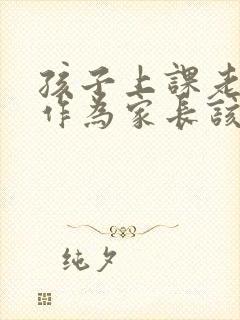 孩子上課老
作為家長該
純夕